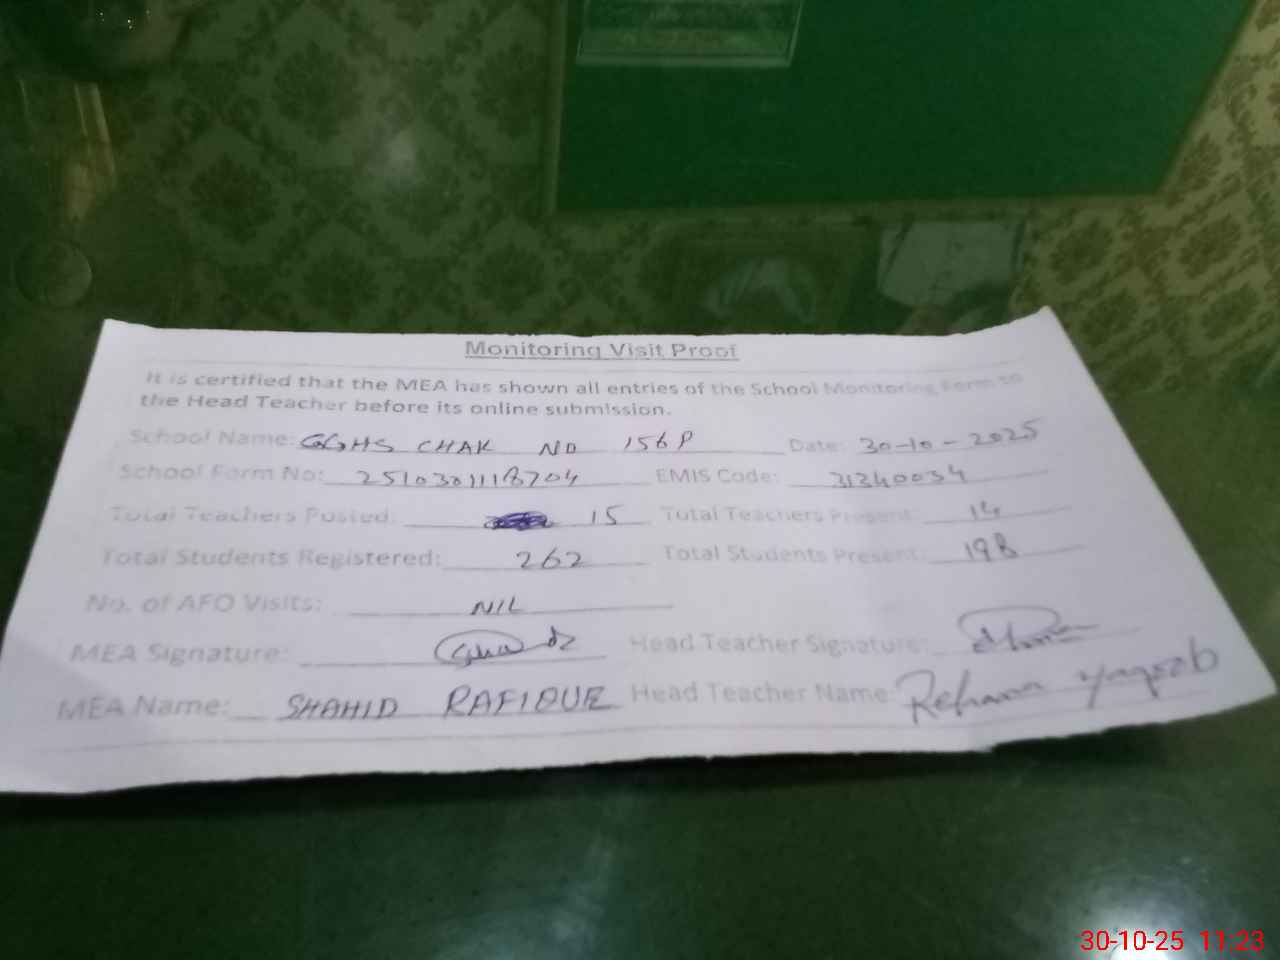 Monitoring Visit Proof
It is certified that the MEA has shown all entries of the School Monitoring Form to
the Head Teacher before its online submission.
School Name: GGHS CHAK NO 156P Date: 30-10-2025
School Form No: 2510301118704 EMIS Code: 31340034
Total Teachers Posted: 15 Total Teachers Present: 14
Total Students Registered: 262 Total Students Present: 198
No. of AFO Visits: NIL
MEA Signature: Head Teacher Signature:
MEA Name: SHAHID RAFIQUE Head Teacher Name: Rehana Yaqoob
30-10-25 11:23